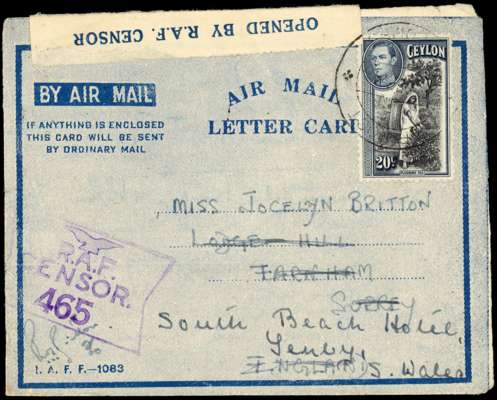 OPENED BY R.A.F. CENSOR
BY AIR MAIL
IF ANYTHING IS ENCLOSED
THIS CARD WILL BE SENT
BY ORDINARY MAIL
AIR MAIL
LETTER CARD
CEYLON
20c
MISS JOCELYN BRITTON
LODGE HILL
FARNHAM
SURREY
South Beach Hotel,
Tenby,
ENGLAND S. Wales
R.A.F.
CENSOR.
465
I. A. F. F.–1083